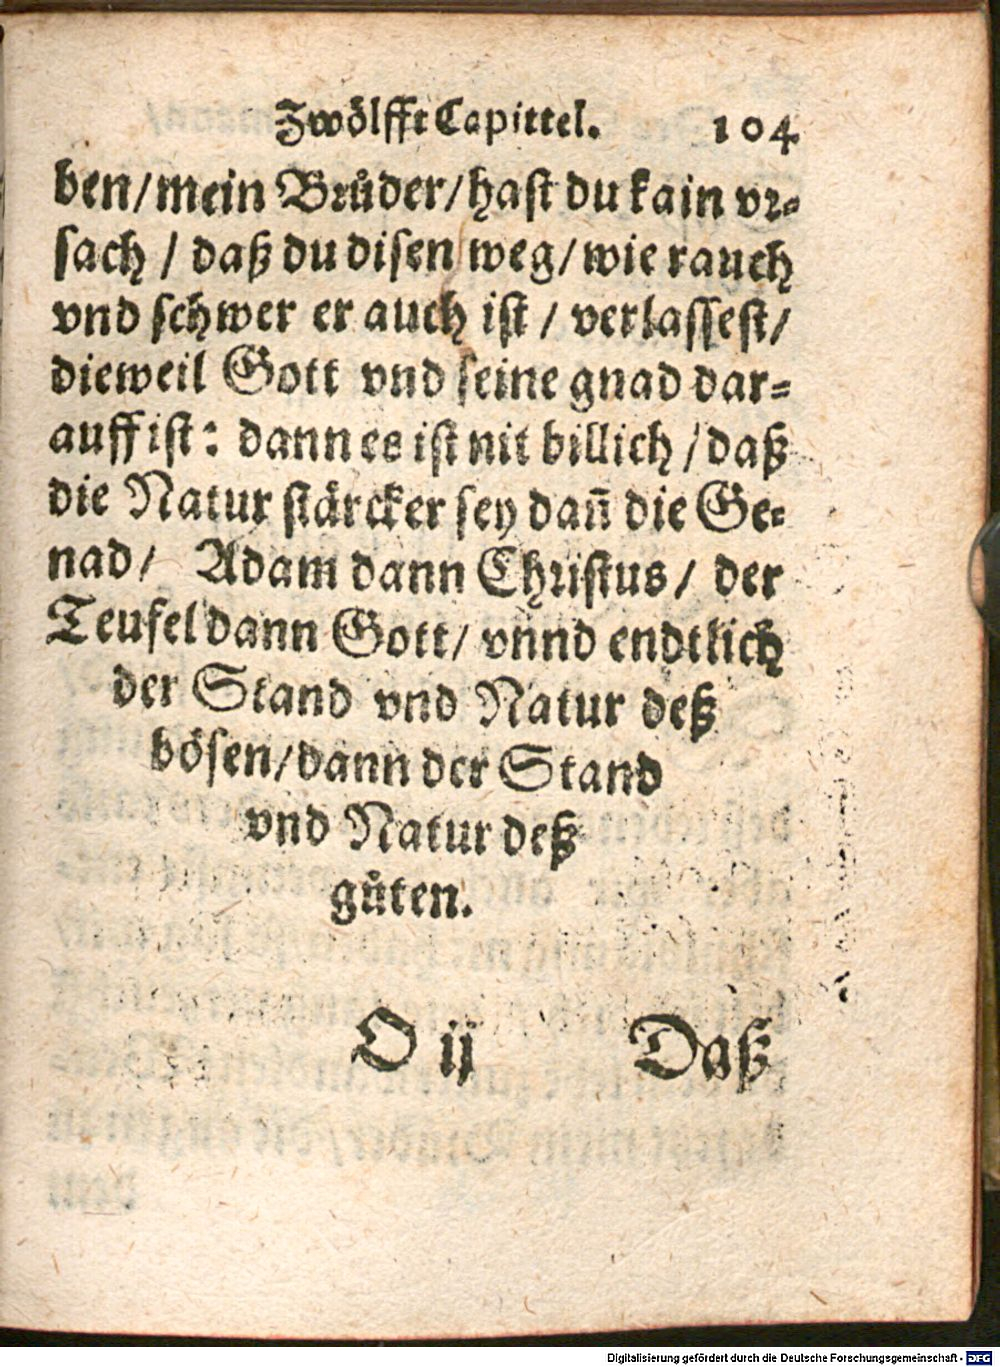 Zwölfft Capittel. 104
ben/mein Brůder/hast du kain vr⸗
sach / daß du disen weg/wie rauch
vnd schwer er auch ist / verlassest/
dieweil Gott vnd seine gnad dar⸗
auff ist: dann es ist nit billich / daß
die Natur stärcker sey dañ die Ge⸗
nad/ Adam dann Christus / der
Teufel dann Gott/ vnnd endtlich
der Stand vnd Natur deß
bösen/dann der Stand
vnd Natur deß
gůten.
O ij Daß
Digitalisierung gefördert durch die Deutsche Forschungsgemeinschaft - DFG